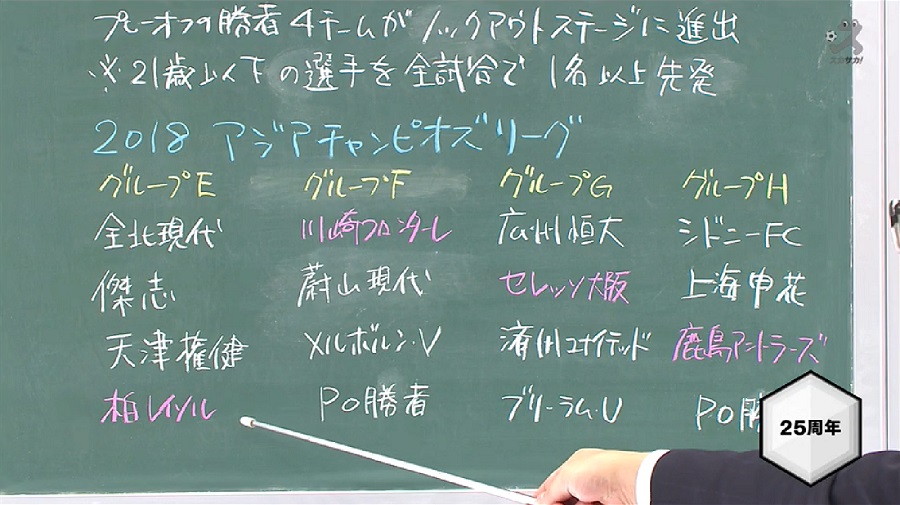 プレーオフの勝者4チームがノックアウトステージに進出
※21歳以下の選手を全試合で1名以上先発
2018 アジアチャンピオズリーグ
グループE グループF グループG グループH
全北現代 川崎フロンターレ 広州恒大 シドニーFC
傑志 蔚山現代 セレッソ大阪 上海申花
天津権健 メルボルン・V 済州ユナイテッド 鹿島アントラーズ
柏レイソル PO勝者 ブリーラム・U PO勝
25周年
スカサカ!